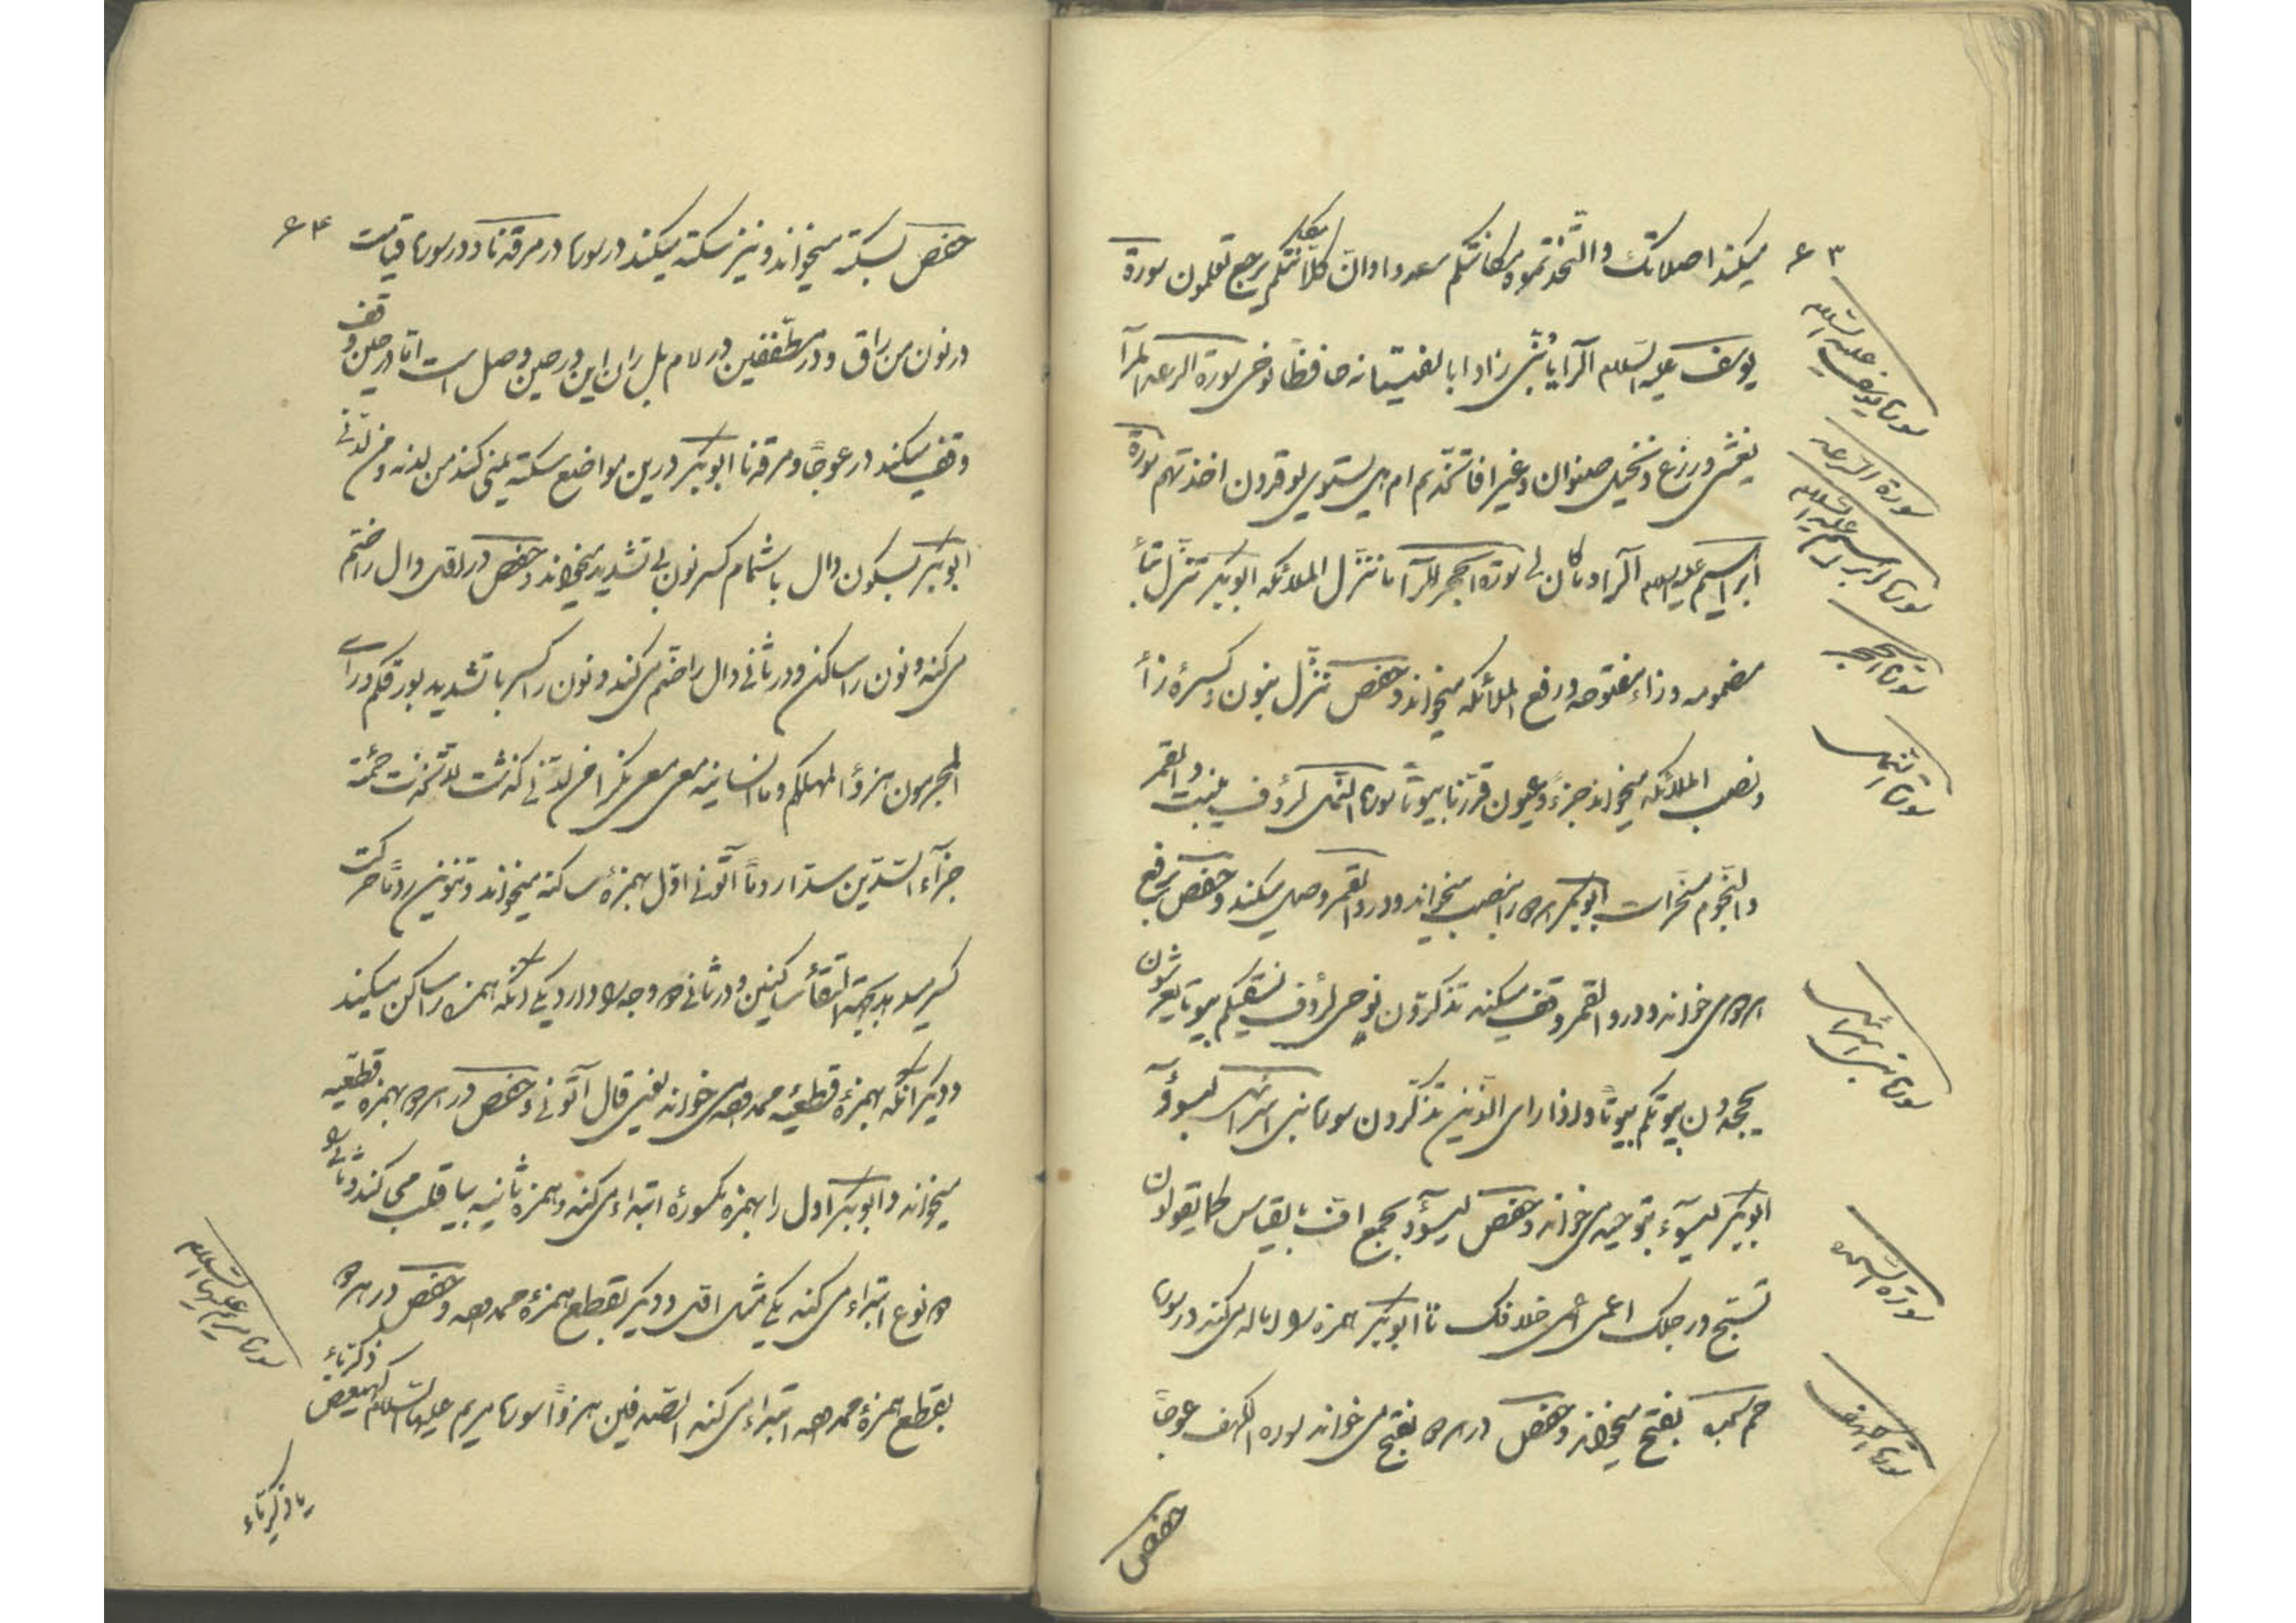 ۶۳
میکند اصلاتک واتخذتموه مکانتکم سعدوا وان کلا یرجع تعلمون سورة
یوسف علیه السلام الر یا بنی رءاد ابا لفتیانه حافظا نوحی سورة الرعد المرا
یغشی وزرع ونخیل صنوان وغیر افاتخذتم ام هل یستوی یوقدون اخذتهم سورة
ابراهیم علیه السلام الرا وما کان لی سورة الحجر الرا ما ننزل الملائکه ابوبکر تنزل بتاء
مضمومه وزاء مفتوحه ورفع الملائکه میخواند وحفص ننزل بنون وکسرهٔ زاء
ونصب الملائکه میخواند جزء وعیون قدرنا بیوتا سورة النحل لرؤف ینبت والقمر
والنجوم مسخرات ابوبکر را بنصب میخواند ودر والقمر وصل میکند وحفص برفع
می خواند ودر والقمر وقف میکند تذکرون نوحی لرؤف نسقیکم بیوتا یعرشون
یجحدون بیوتکم بیوتا واذا رای الذین تذکرون سوره بنی اسرائیل لیسوؤ
ابوبکر لیسوء بتوحید می خواند وحفص لیسوؤ بجمع اف بالقسطاس کما یقولون
تسبح ورجلک اعمی اعمی خلافک نئا ابوبکر همزه را اماله می کند در سوره
حم سجده بفتح میخواند وحفص در هر دو بفتح می خواند سوره الکهف عوجا
حفص
سوره یوسف علیه السلام
سورة الرعد
سوره ابراهیم علیه السلام
سورة الحجر
سورة النحل
سوره بنی اسرائیل
سورة السجده
سورة الکهف
۶۴
حفص بسکته میخواند ونیز سکته میکند در سوره در مرقدنا ودر سوره قیامت
در نون من راق ودر مطففین در لام بل ران این در حین وصل است اما در حین وقف
وقف میکند در عوجا ومرقدنا ابوبکر درین مواضع سکته نمی کند من لدنه ومن لدنی
ابوبکر بسکون دال باشمام کسر نون بی تشدید میخواند وحفص در اول دال را ضم
می کند ونون را ساکن ودر ثانی دال را ضم می کند ونون را کسر با تشدید بورقکم ورای
المجرمون هزؤا لمهلکهم وما انسانیه معی معی نکرا من لدنی گذشت لتخذت حمئة
جزآء السدین سدا ردما آتونی اول بهمزهٔ ساکنه میخواند وتنوین ردما حرکت
کسر میدهد بجهة التقاء ساکنین ودر ثانی دو وجه دارد یکی آنکه همزه را ساکن میکند
ودیگر آنکه بهمزهٔ قطعیه ممدوده می خواند یعنی قال آتونی وحفص در هر دو بهمزه قطعیه
میخواند وابوبکر اول را بهمزه مکسوره ابتداء می کند وهمزه ثانیه بیا قلب می کند وثانی را
دو نوع ابتداء می کند یکی مثل اول ودیگر بقطع همزهٔ ممدوده وحفص در هر دو
بقطع همزهٔ ممدوده ابتداء می کند الصدفین هزوا سوره مریم علیها السلام کهیعص
ذکریاء
یا ذکریاء
سوره مریم علیها السلام